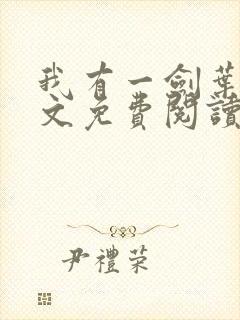 我有一劍葉
文免費閱讀
尹禮荣